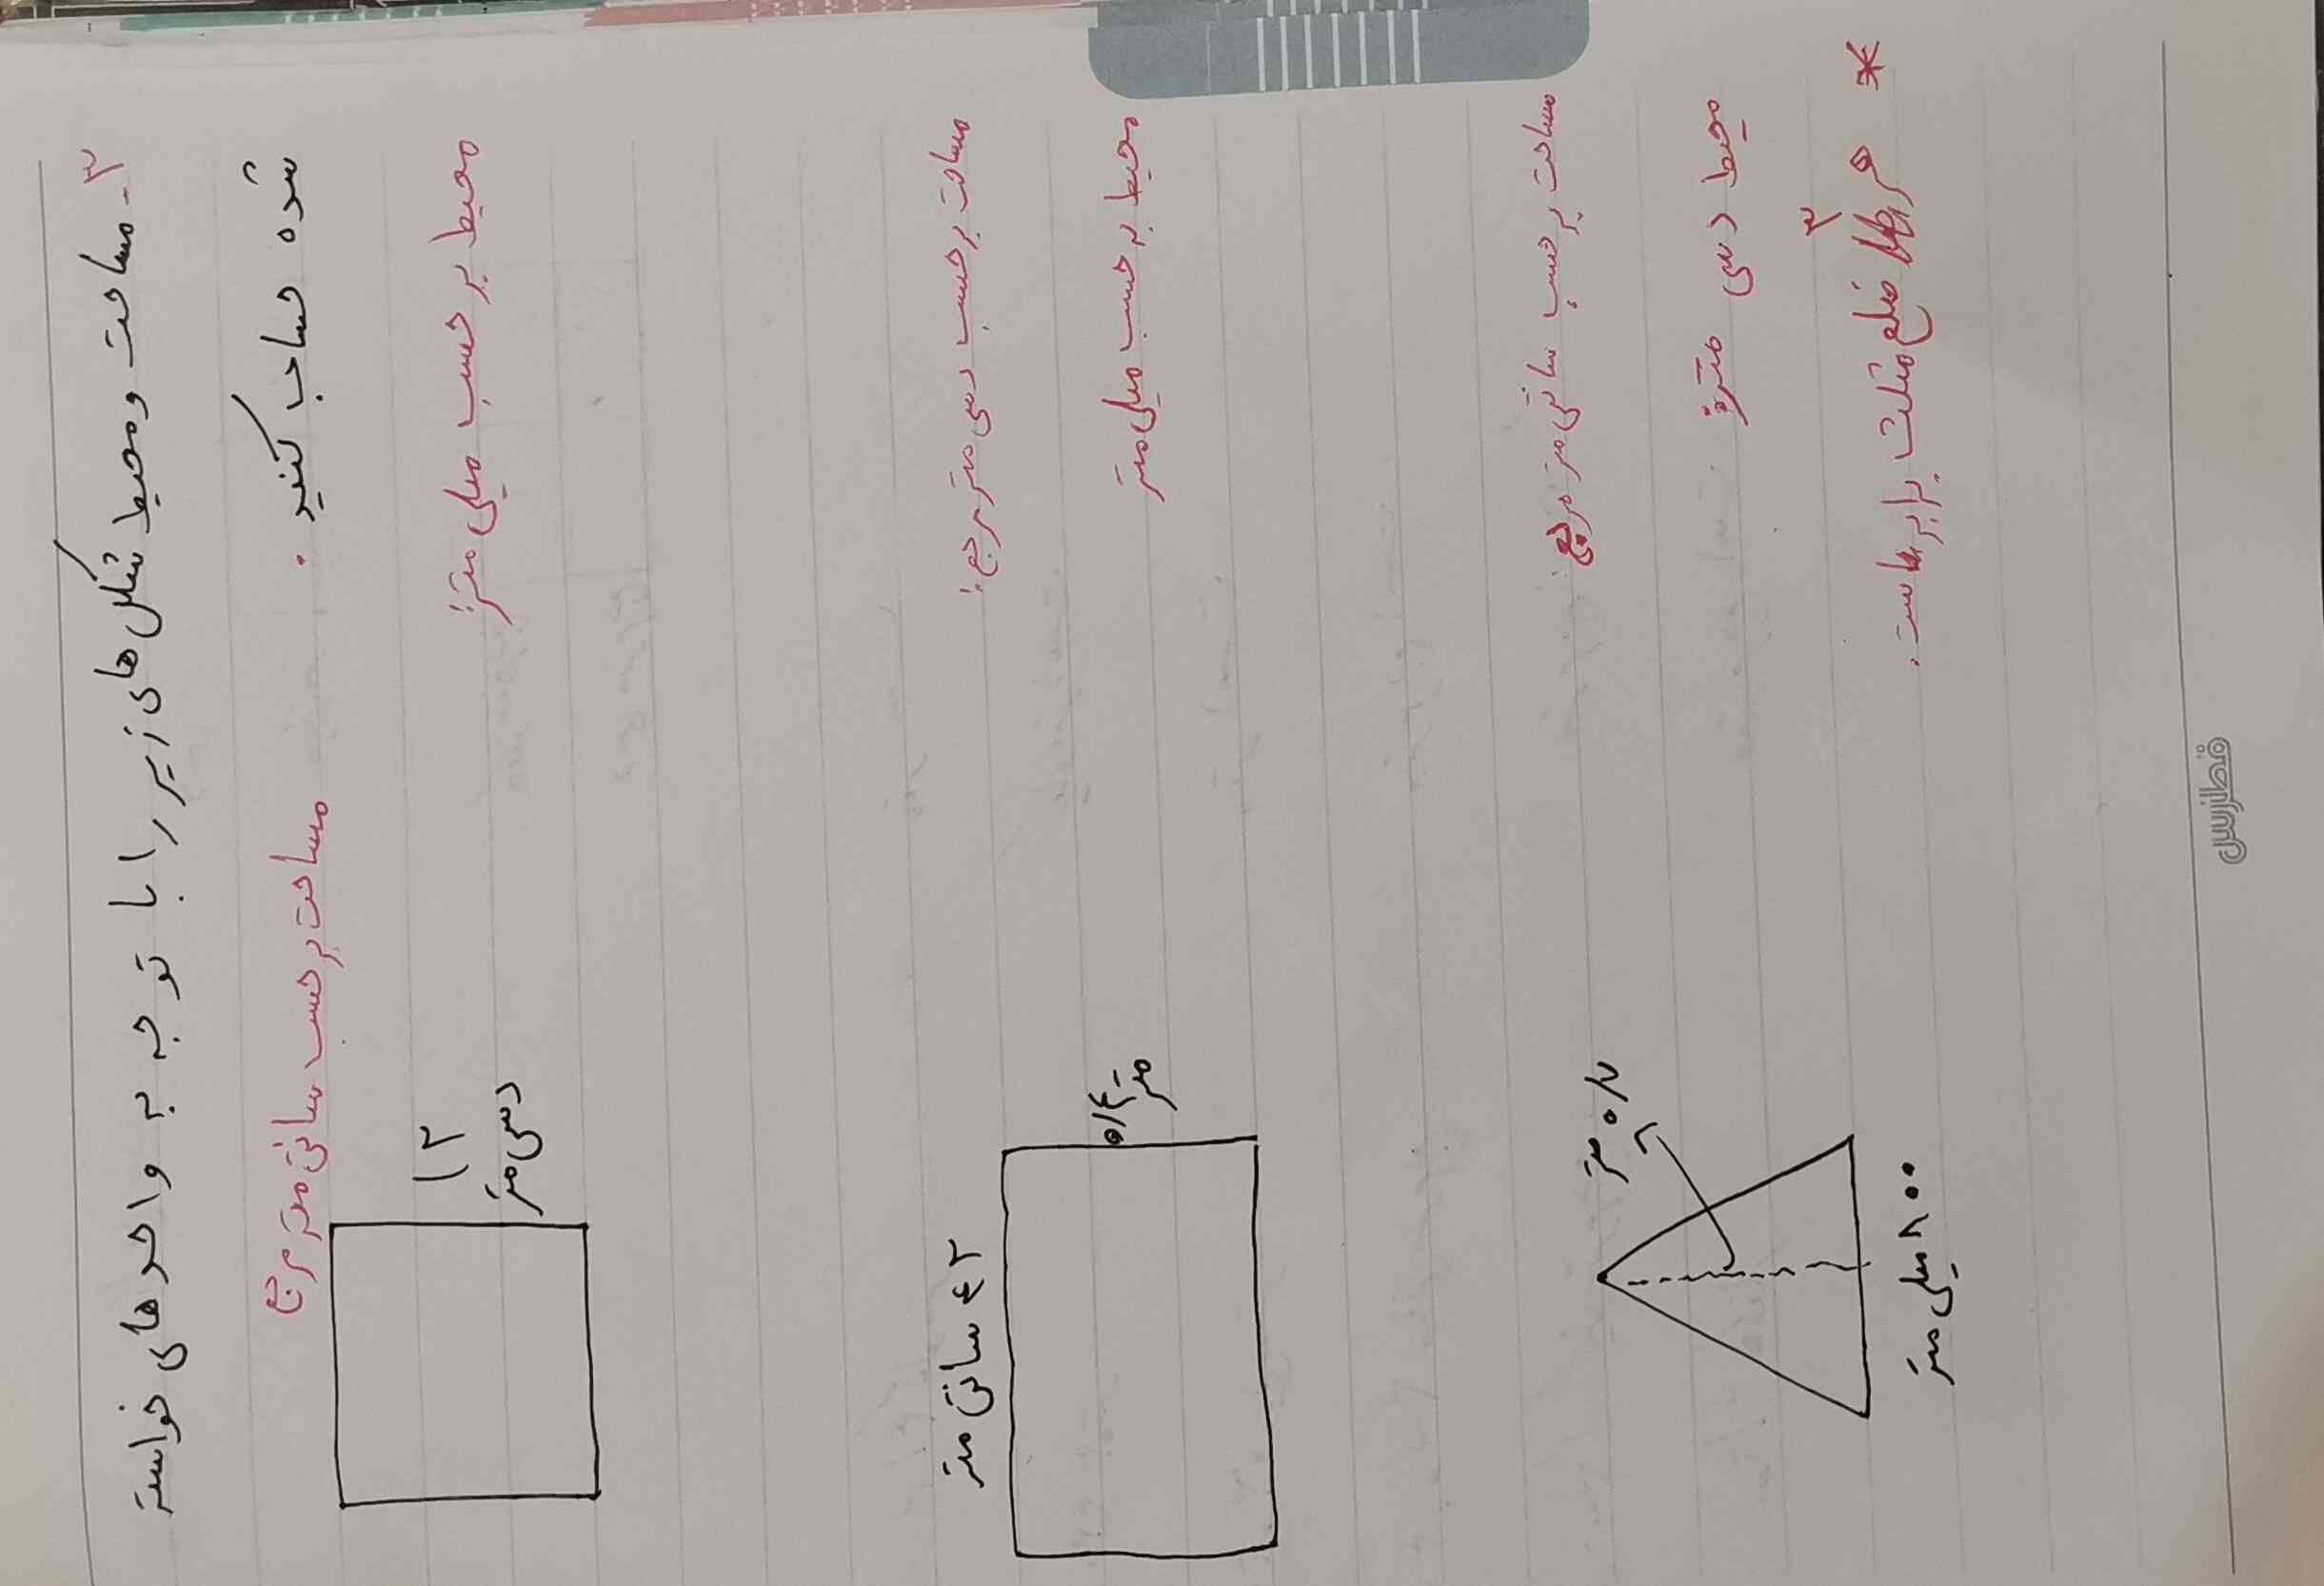 ۳- مساحت و محیط شکل های زیر را با توجه به واحدهای خواسته
شده حساب کنید .
مساحت بر حسب سانتی متر مربع
محیط بر حسب میلی متر:
۱۲
دسی متر
مساحت بر حسب دسی متر مربع:
۴۲ سانتی متر
محیط بر حسب میلی متر
۰/۴
متر
مساحت بر حسب سانتی متر مربع:
۰/۷ متر
محیط دسی متر:
۸۰۰ میلی متر
* هر ۳ ضلع مثلث برابر است.
فطرس